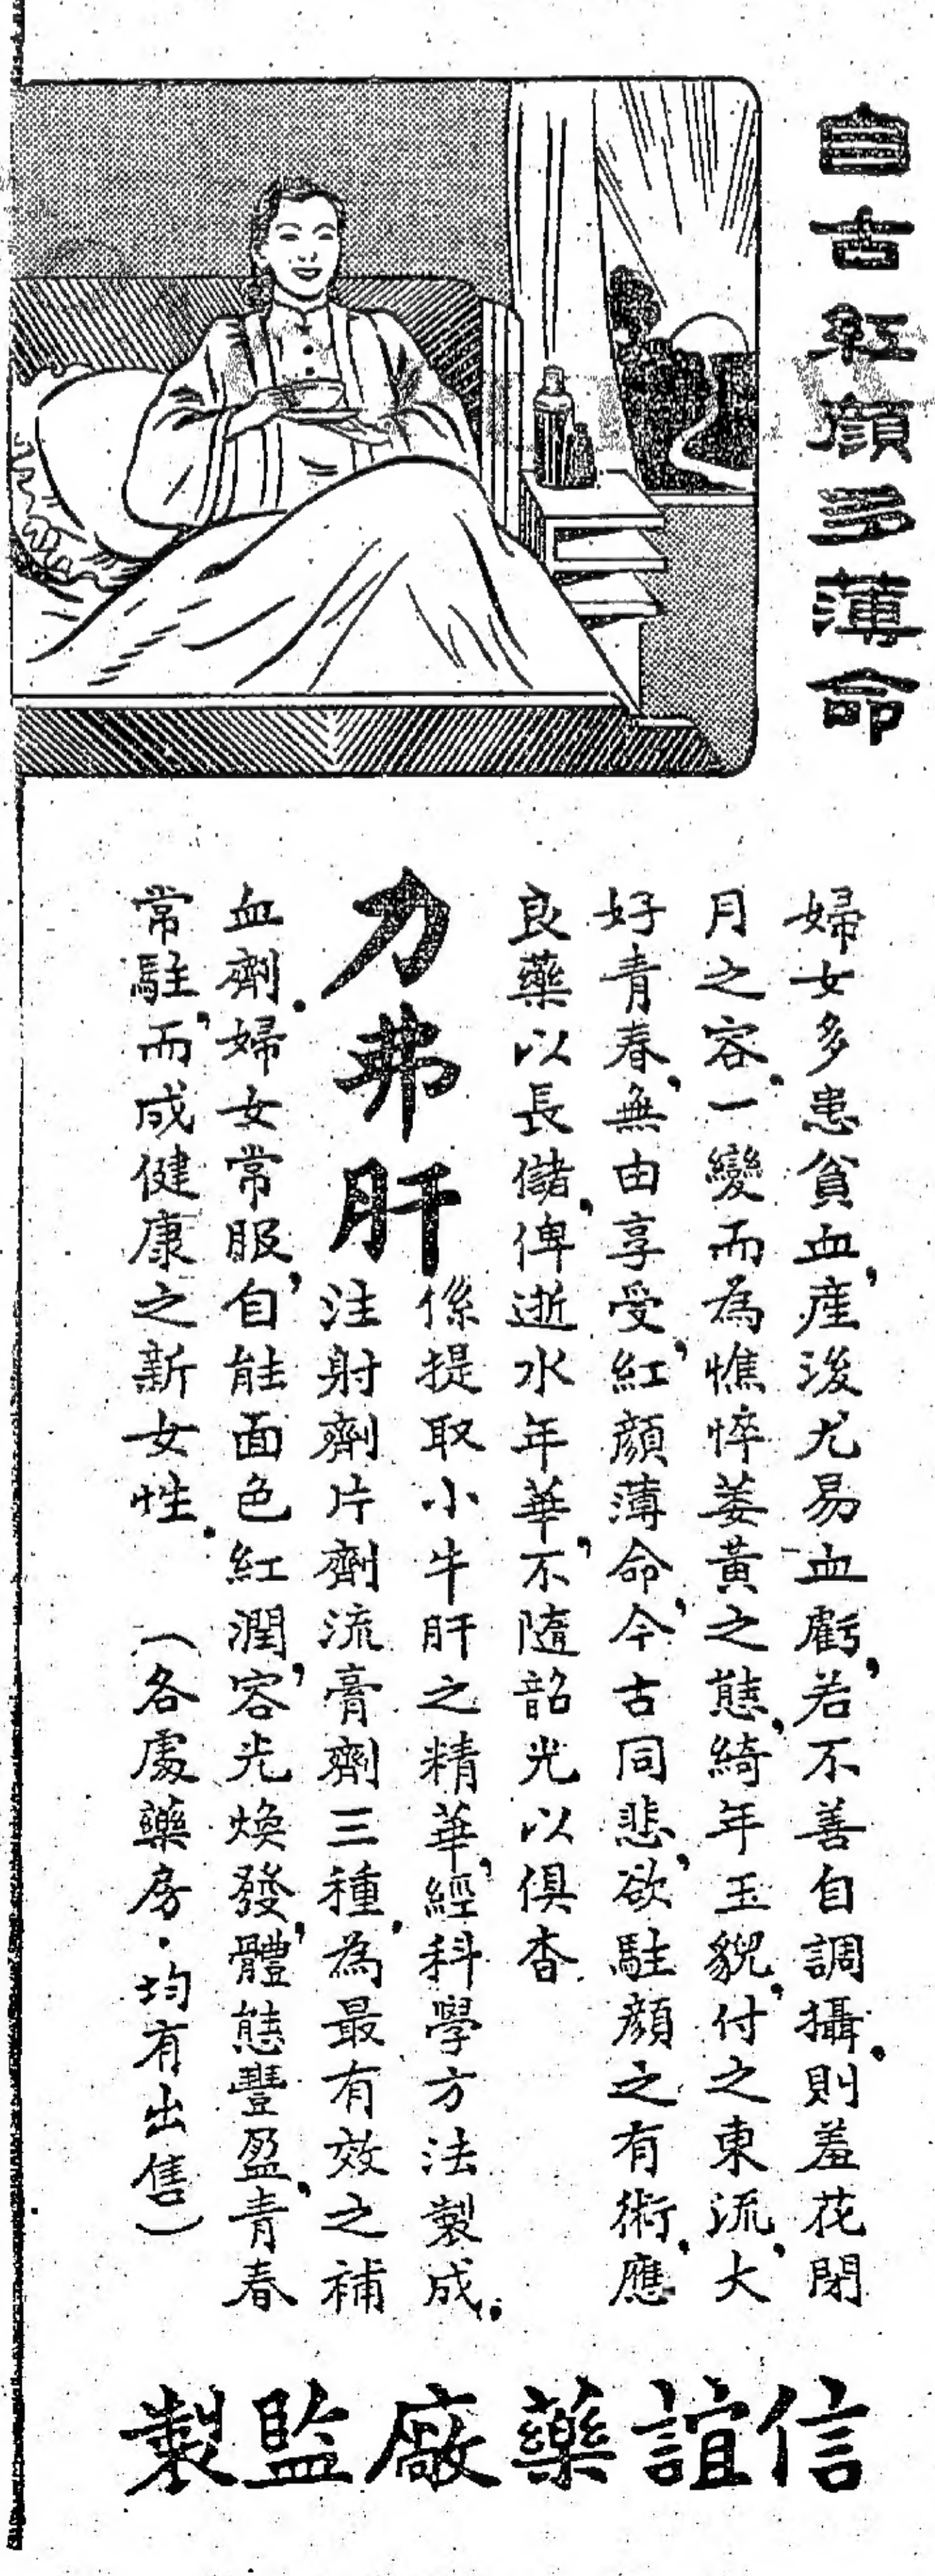 自古紅顏多薄命
婦女多患貧血，產後尤易血虧，若不善自調攝，則羞花閉
月之容，一變而為憔悴萎黃之態，綺年玉貌，付之東流，大
好青春，無由享受，紅顏薄命，今古同悲，欲駐顏之有術，應
良藥以長儲，俾逝水年華，不隨韶光以俱杳．
力弗肝
係提取小牛肝之精華，經科學方法製成．
注射劑片劑流膏劑三種．為最有效之補
血劑．婦女常服，自能面色紅潤，容光煥發，體態豐盈，青春
常駐，而成健康之新女性．（各處藥房．均有出售）
信誼藥廠監製